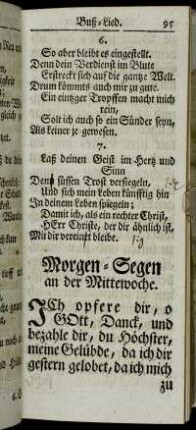 Buß-Lied. 95
6.
So aber bleibt es eingestellt.
Denn dein Verdienst im Blute
Erstreckt sich auf die gantze Welt.
Drum kömmts auch mir zu gute.
Ein eintzger Tropffen macht mich
rein,
Solt ich auch so ein Sünder seyn,
Als keiner je gewesen.
7.
Laß deinen Geist im Hertz und
Sinn
Den süssen Trost versiegeln,
Und sich mein Leben künfftig hin
In deinem Leben spiegeln;
Damit ich, als ein rechter Christ,
HErr Christe, der dir ähnlich ist,
Mit dir vereinigt bleibe.
Morgen-Segen
an der Mittewoche.
ICh opfere dir, o
GOtt, Danck, und
bezahle dir, du Höchster,
meine Gelübde, da ich dir
gestern gelobet, da ich mich
zu